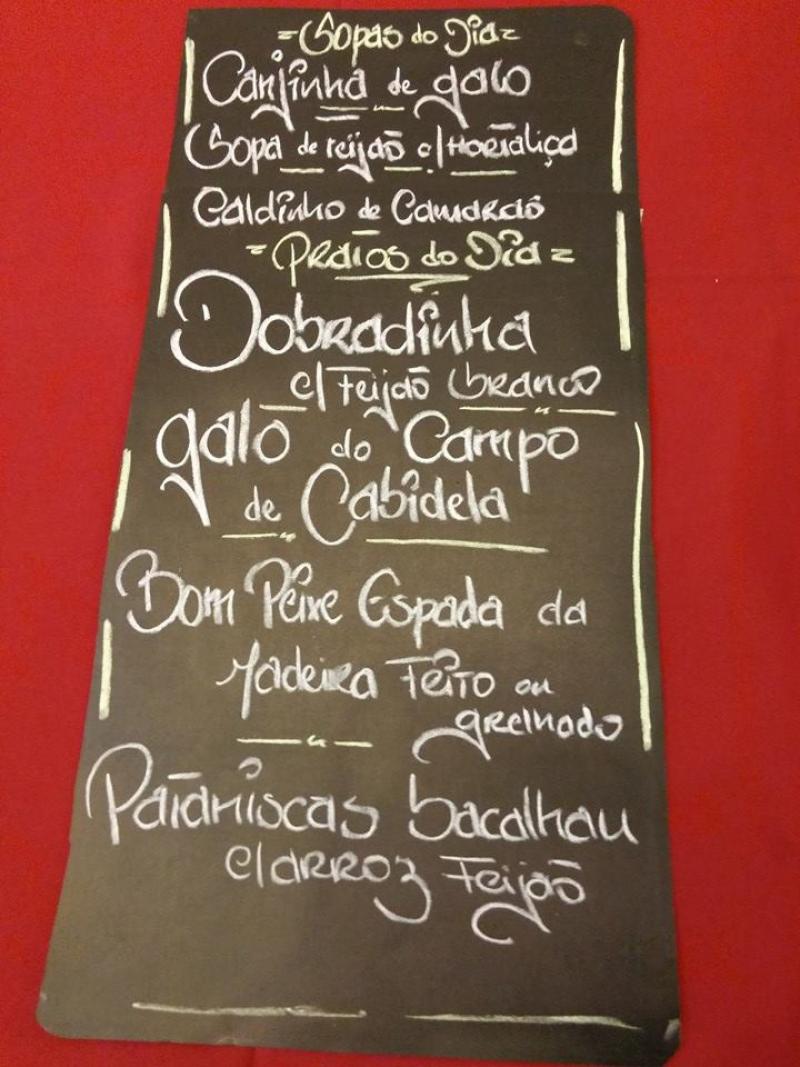 Sopas do Dia
Canjinha de galo
Sopa de Feijão c/ Hortaliça
Caldinho de Camarão
Pratos do Dia
Dobradinha
c/ Feijão branco
galo do Campo
de Cabidela
Bom Peixe Espada da
Madeira Frito ou
grelhado
Pataniscas bacalhau
c/ arroz Feijão